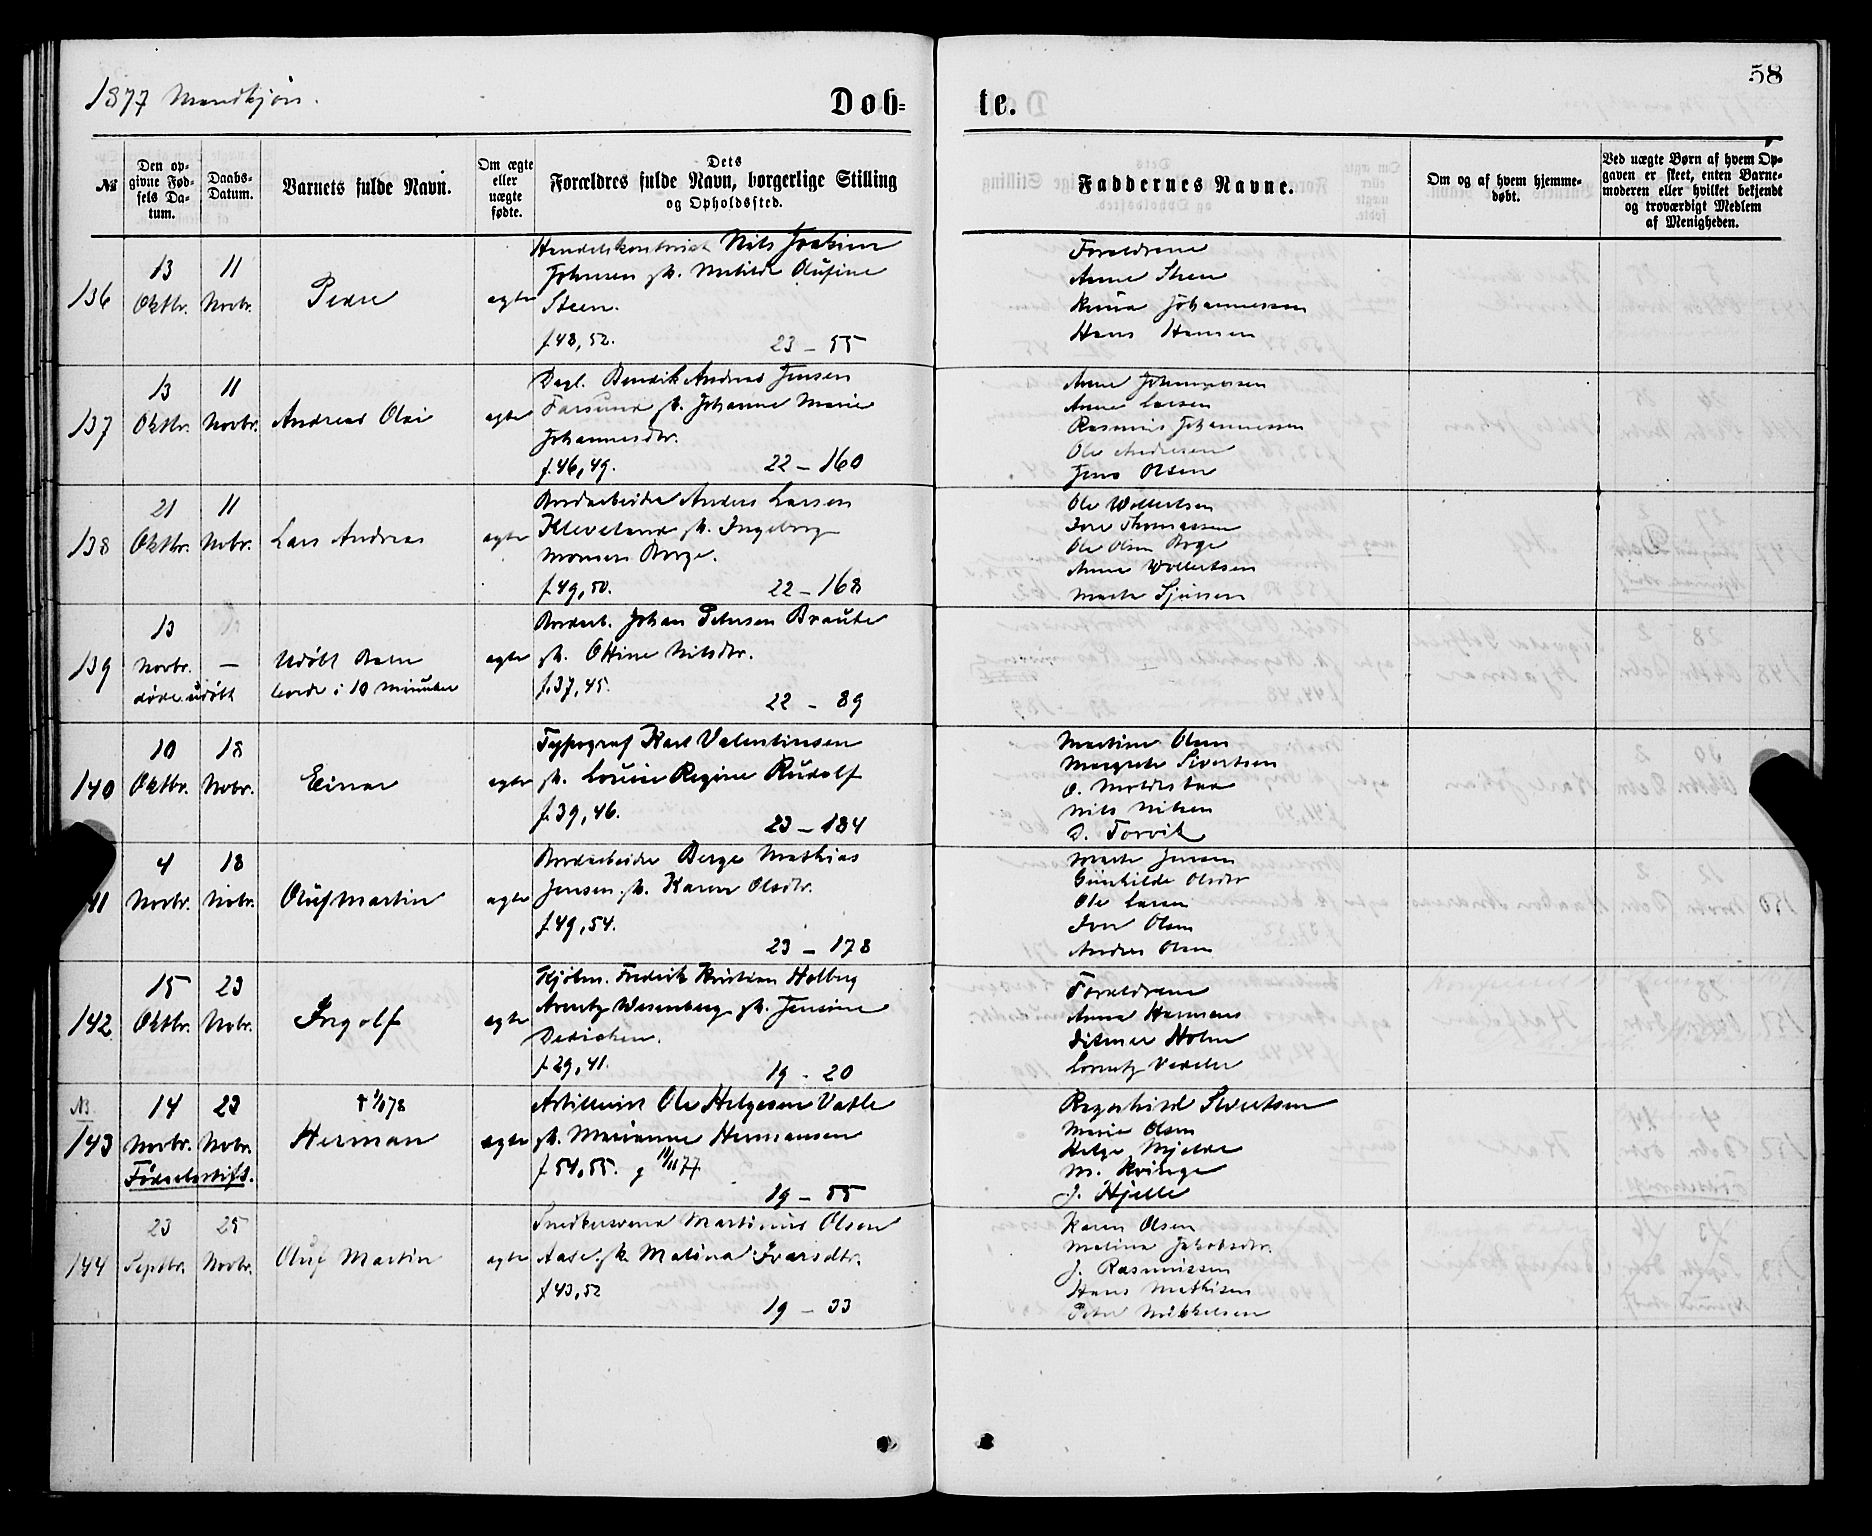 58
1877 Mandkjøn.
Døb-
te.
№
Den op-
givne Fød-
sels Da-
tum.
Daabs-
Datum.
Barnets fulde Navn.
Om ægte
eller
uægte
fødte.
Dets
Forældres fulde Navn, borgerlige Stilling
og Opholdssted.
Faddernes Navne.
Om og af hvem hjemme-
døbt.
Ved uægte Børn af hvem Op-
gaven er skeet, enten Barne-
moderen eller hvilket bekjendt
og troværdigt Medlem
af Menigheden.
136
13
Oktbr.
11
Novbr.
Peder
ægte
Handelskontorist Nils Joakim
Johnsen og h. Matilde Olufine
Steen.
f. 48, 52.
23 - 55
Forældrene
Anne Steen
Johannessen
Hans Hansen
137
13
Oktbr.
11
Novbr.
Andreas Olai
ægte
Dagl. Bendik Andreas Jensen
Farsund og h. Johanne Marie
Johannesdtr.
f. 46, 49.
22 - 160
Anne Johannessen
Anne Larsen
Rasmus Johannessen
Ole Andersen
Jens Olsen
138
21
Oktbr.
11
Nobr.
Lars Andreas
ægte
Bordarbeider Anders Larsen
Kleveland og h. Ingeborg
Monsen Borge.
f. 49, 50.
22 - 168
Ole Wollertsen
Iver Thomassen
Ole Olsen Borge
Anne Wollertsen
Marte
139
13
Novbr.
—
døde udøbt
Udøbt Barn
levede i 10 Minuter
ægte
Bordarb. Johan Petersen Braute
og h. Ottine Nilsdtr.
f. 37, 45.
22 - 89
140
10
Oktbr.
18
Nobr.
Einar
ægte
Typograf Karl Valentinsen
og h. Louise Regine Rudolf
f. 39, 46.
23 - 184
Martine Olsen
Margrete Sivertsen
O. Moldestad
Nils Nilsen
D. Torvik
41
4
Novbr.
18
Nobr.
Oluf Martin
ægte
Bordarbeider Berge Mathias
Jensen og h. Karen Olsdtr.
f. 49, 54.
23 - 178
Marte Jensen
Gunhilde Olsdtr
Ole Larsen
Iver Olsen
Andrea Olsen
142
15
Oktbr.
23
Nobr.
Ingolf
ægte
Kjøbm. Fredrik Kristian Holberg
Arentz Wesenberg og h. Jensine
Dedichen.
f. 29, 41.
19 - 20
Forældrene
Anna Hermans
Ditmar Holm
Lorentz Vedeler
NB
143
14
Novbr.
Fødselsstift.
23
Nobr.
Herman
ægte
Artillerist Ole Helgesen Vatle
og h. Marianne Hermansen
f. 54, 55. g 11/11 77.
19 - 55
Ragnhild Sivertsen
Marie Olsen
Helge Mjelde
M. Kvinge
J. Hjelle
144
23
Septbr.
25
Novbr.
Oluf Martin
ægte
Snedkersvend Martinus Olsen
Aase og h. Malina Ivarsdtr.
f. 43, 52
19 - 33
Karen Olsen
Malina Jakobsdtr.
J. Rasmussen
Hans Mathisen
Peter Mikkelsen